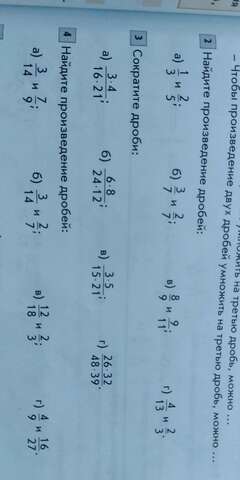 множить на третью дробь, можно ...
– Чтобы произведение двух дробей умножить на третью дробь, можно ...
2 Найдите произведение дробей:
а) 1/3 и 2/5; б) 3/7 и 2/7; в) 8/9 и 9/11; г) 4/13 и 2/3.
3 Сократите дроби:
а) 3·4/16·21; б) 6·8/24·12; в) 3·5/15·21; г) 26·32/48·39.
4 Найдите произведение дробей:
а) 3/14 и 7/9; б) 3/14 и 2/7; в) 12/18 и 2/3; г) 4/9 и 16/27.